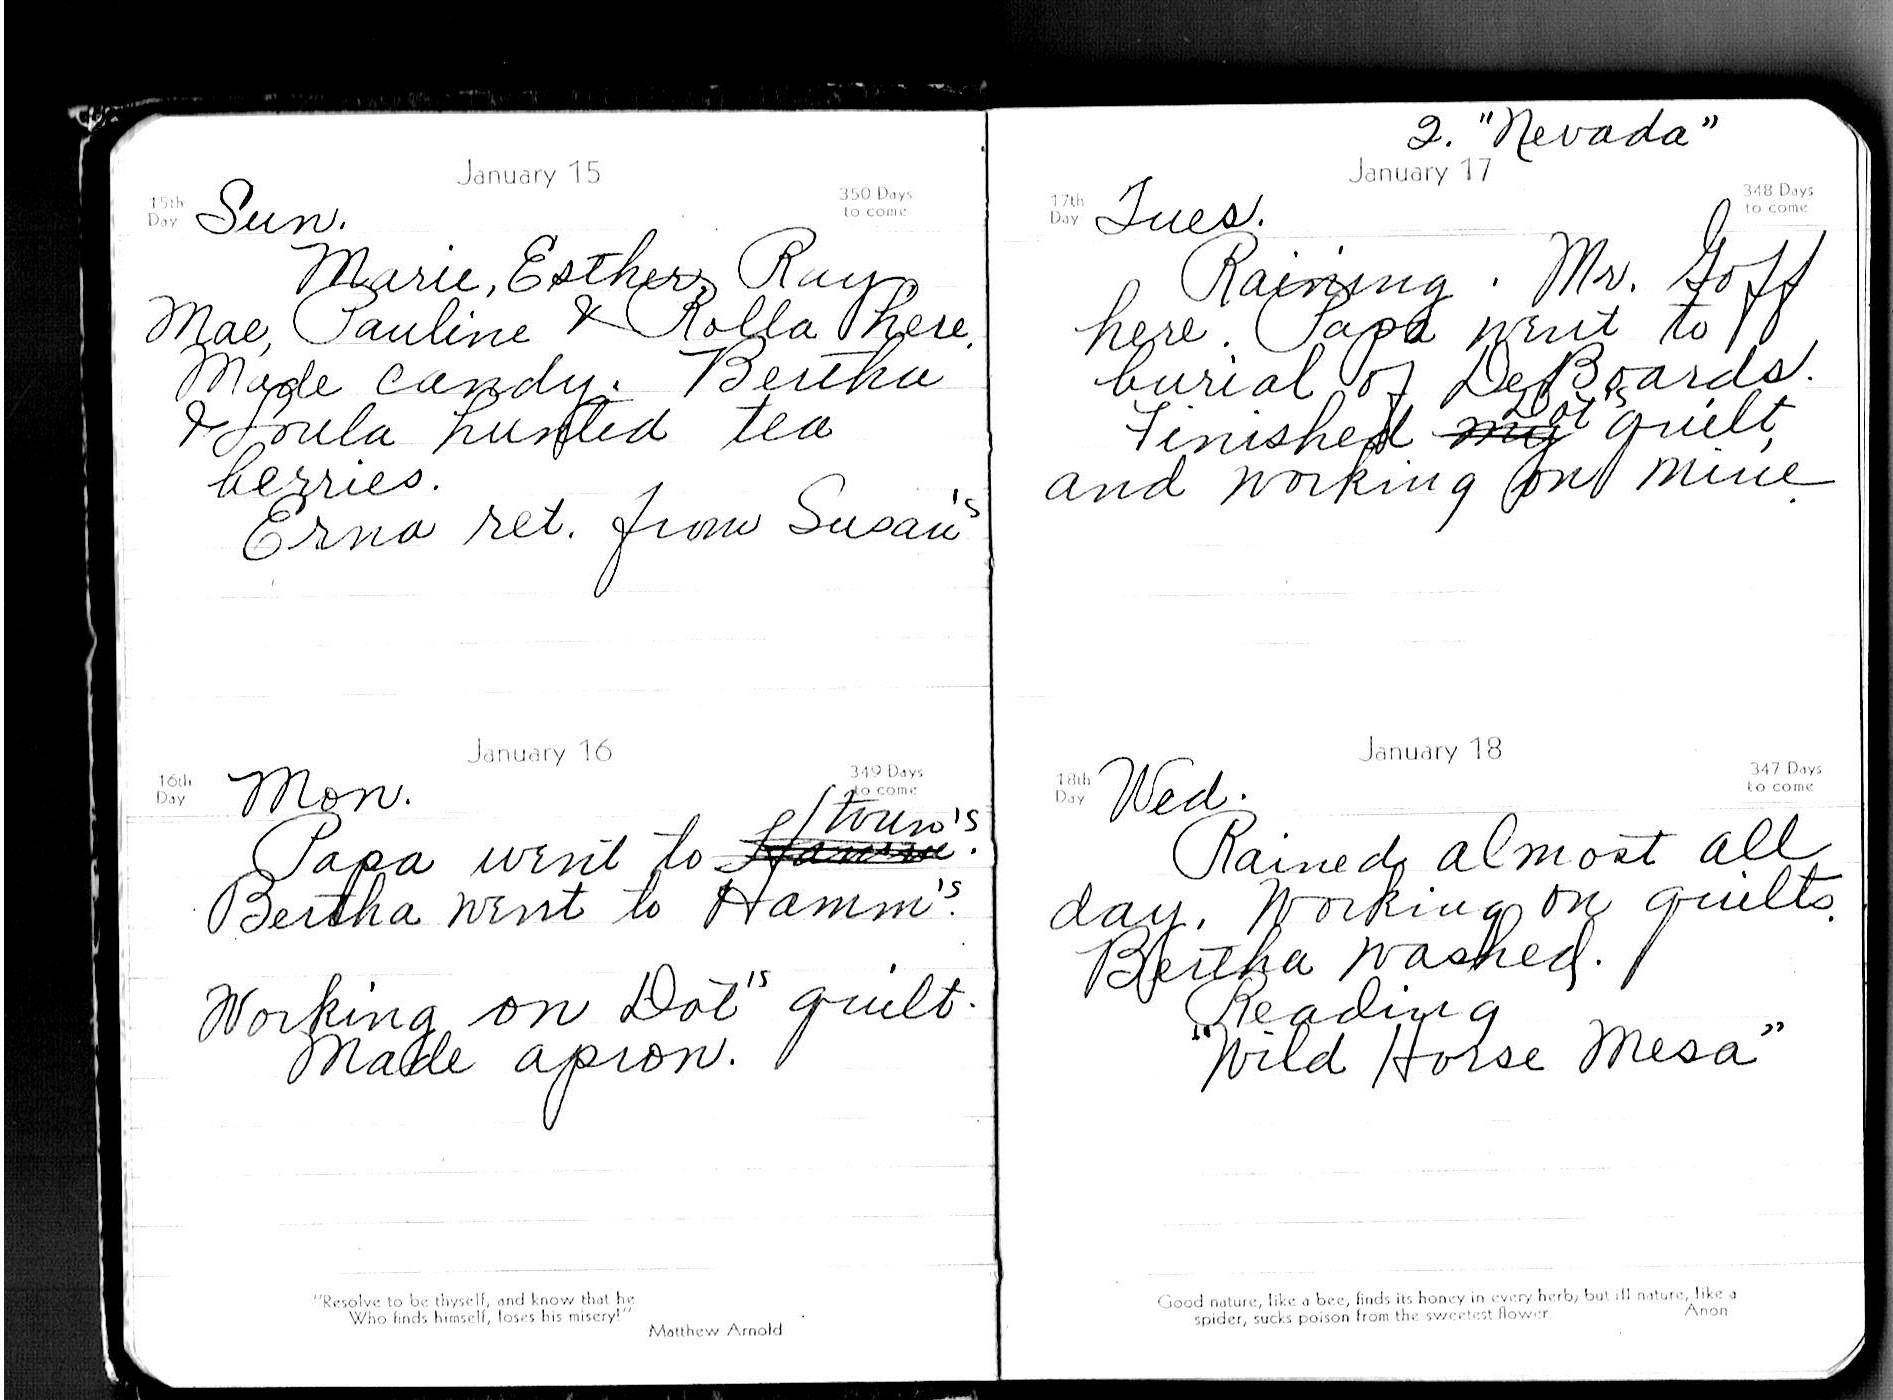 January 15
15th Day
350 Days to come
Sun.
Marie, Esther, Ray,
Mae, Pauline & Rolla here.
Made candy. Bertha
& Loula hunted tea
berries.
Erna ret. from Susan's
January 16
16th Day
349 Days to come
Mon.
town's
Papa went to Hamm.
Bertha went to Hamm's.
Working on Dot's quilt.
Made apron.
"Resolve to be thyself, and know that he
Who finds himself, loses his misery!"
Matthew Arnold
2. "Nevada"
January 17
17th Day
348 Days to come
Tues.
Raining. Mr. Goff
here. Papa went to
burial of DeBoards.
Dot's
Finished my quilt,
and working on mine.
January 18
18th Day
347 Days to come
Wed.
Rained almost all
day. Working on quilts.
Bertha washed.
Reading
"Wild Horse Mesa"
Good nature, like a bee, finds its honey in every herb; but ill nature, like a
spider, sucks poison from the sweetest flower.
Anon